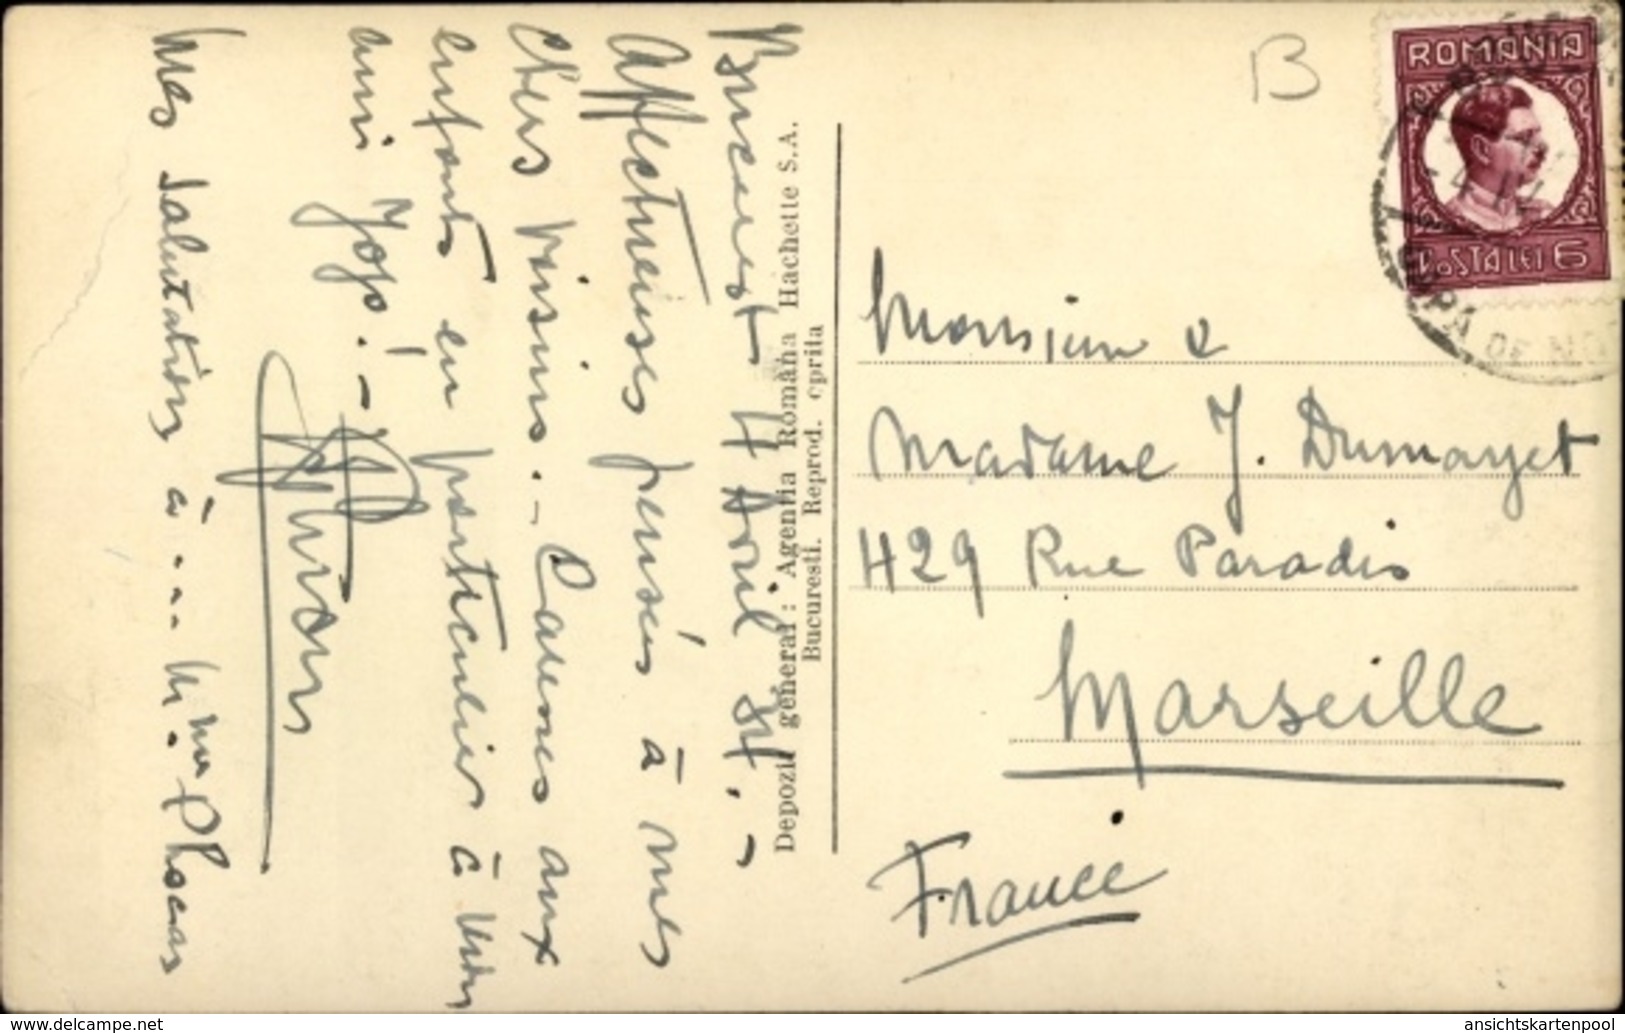 Bucarest 4 Avril 34. –
Affectueuses pensées à mes
Chers voisins. – Caresses aux
enfants en particulier à mon
ami Jojo! –
Mes salutations à .... M. Mme Phocas
Depozit general: Agentia Româna Hachette S.A.
Bucuresti. Reprod. oprita
B
ROMANIA
POSTA LEI 6
Monsieur &
Madame J. Dumayet
429 Rue Paradis
Marseille
France
www.delcampe.net
ansichtskartenpool